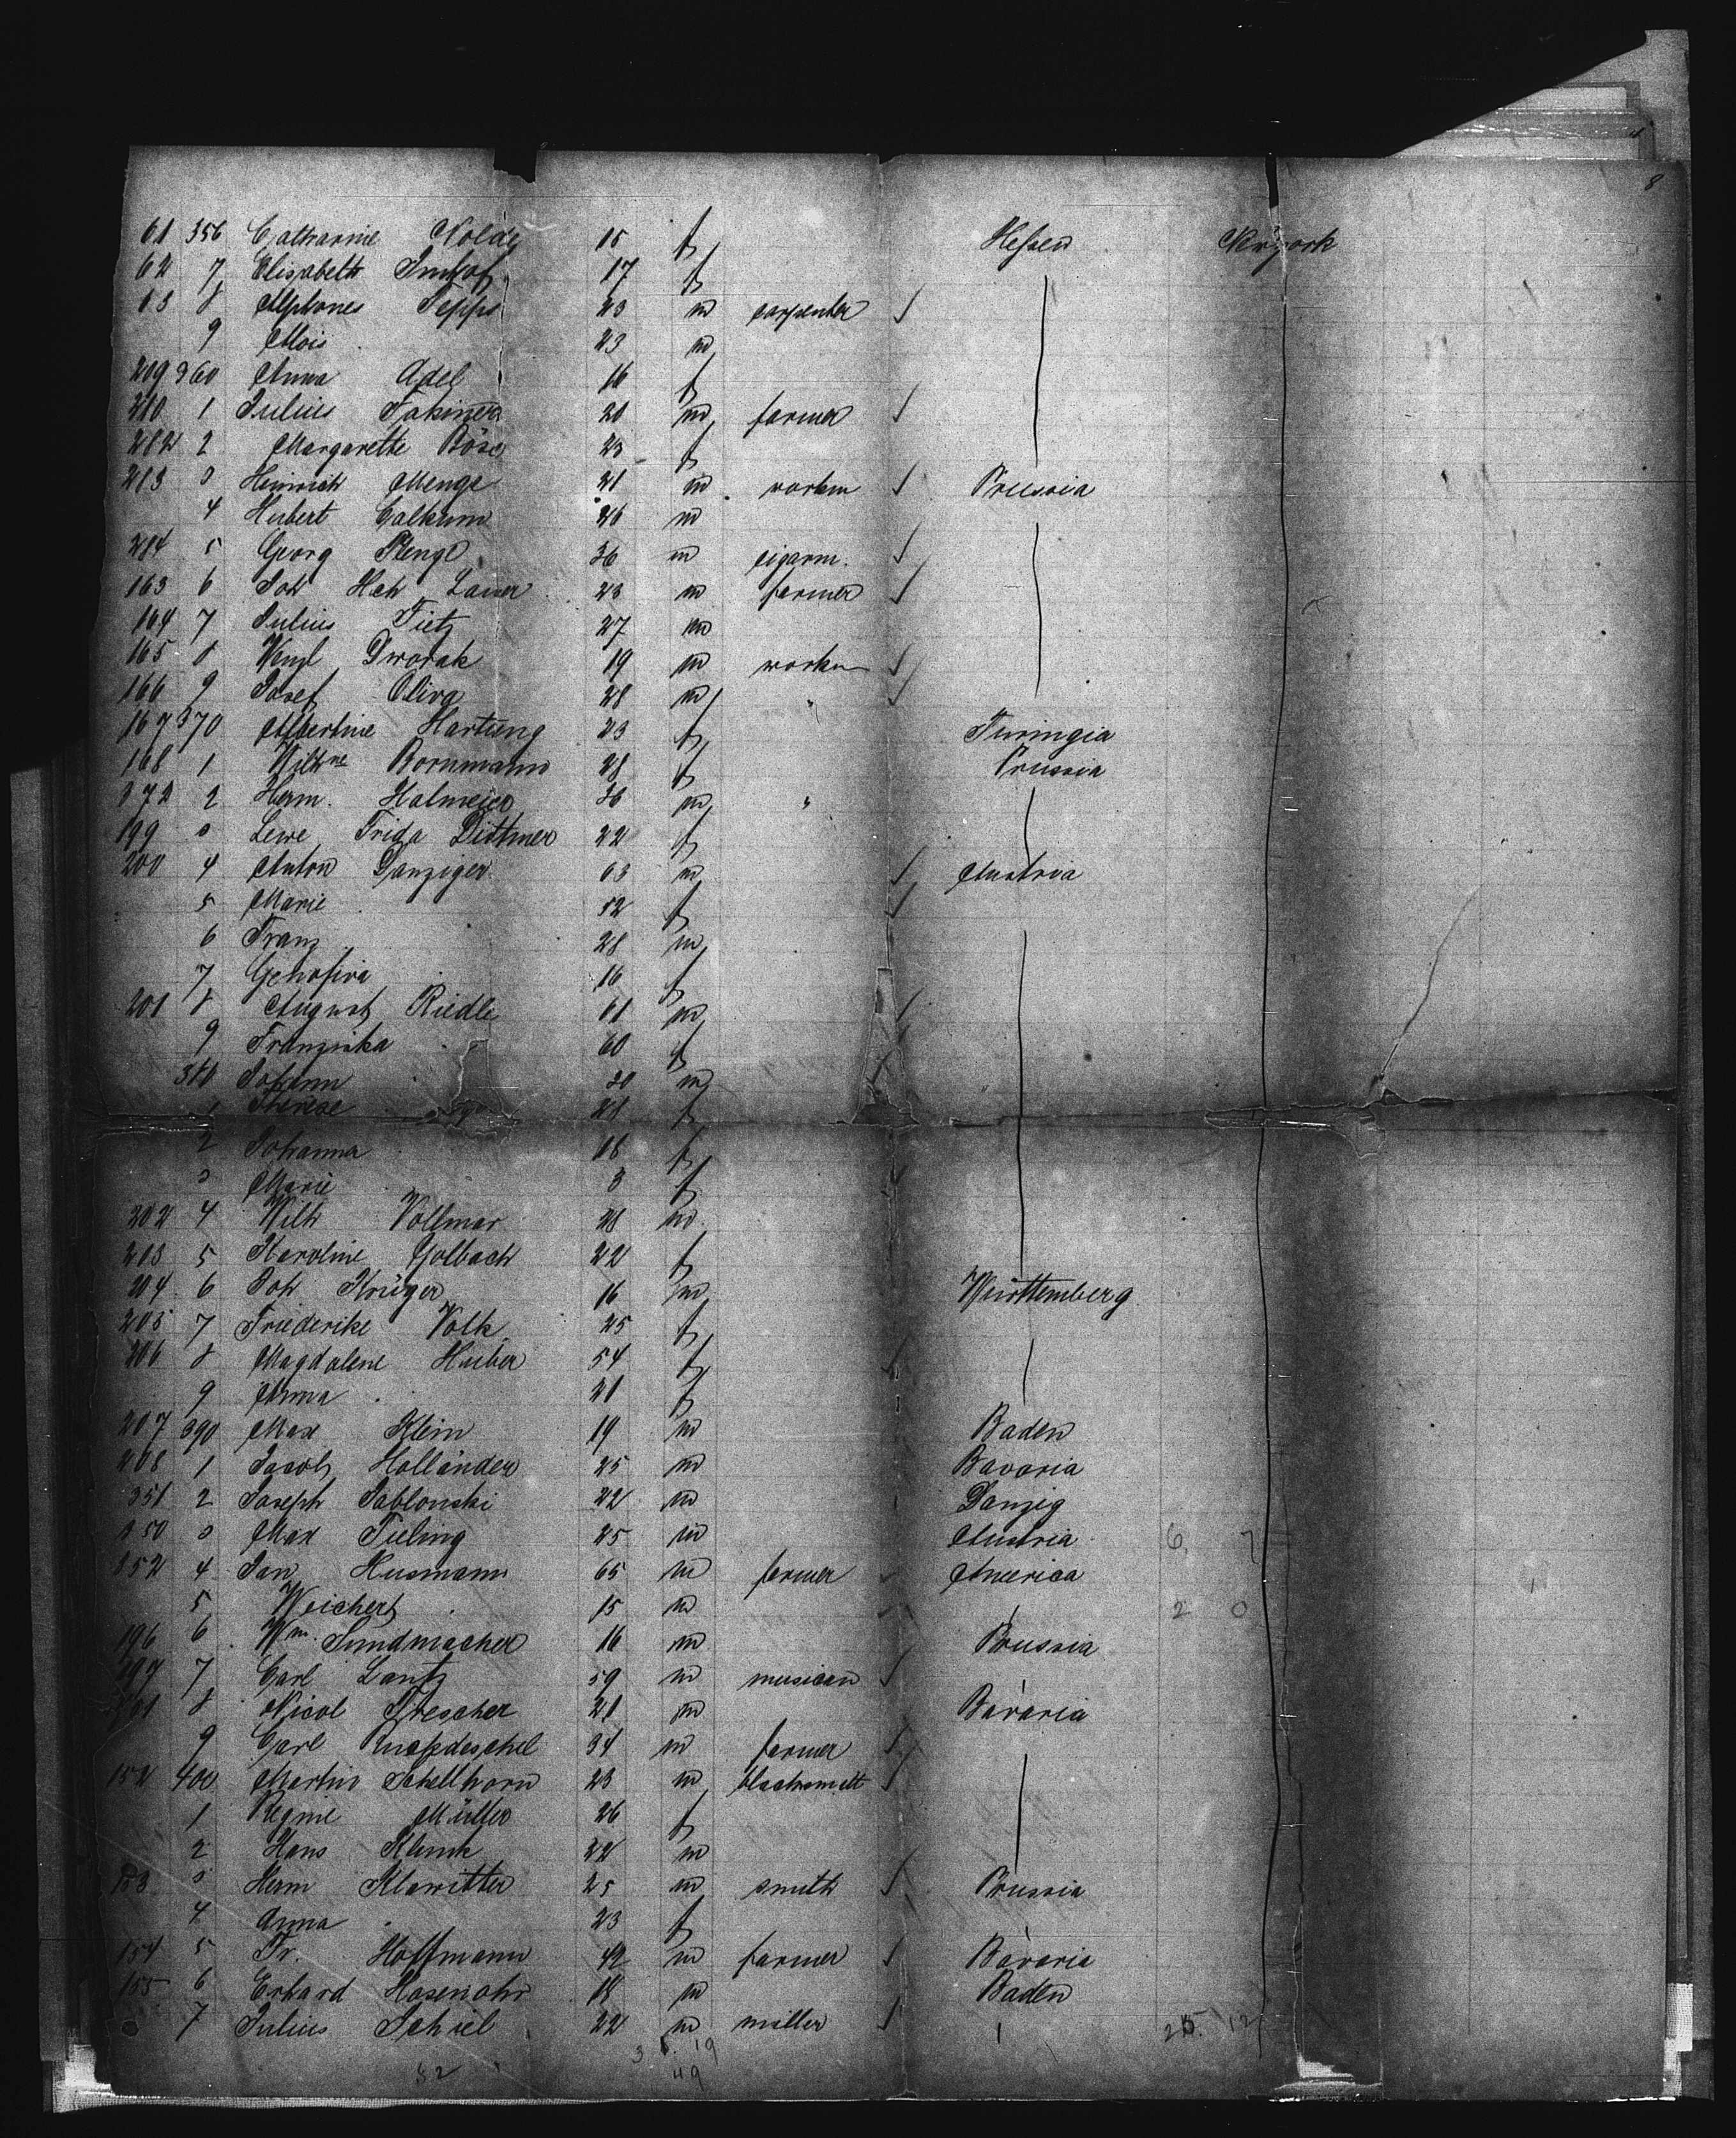 8
61 356 Catharine Nolde 15 f Hessen Newyork
62 7 Elisabeth Imhof 17 f
63 8 Alphones Tepps 23 m carpenter
9 Alois 23 m
209 360 Anna Adel 16 f
210 1 Julius 20 m farmer
212 2 Margarethe Böse 23 f
213 3 Heinrich Menge 21 m workm Prussia
4 Hubert Calkum 26 m
214 5 Georg Plengl 36 m cigarm.
163 6 Joh Hch Lauer 23 m farmer
164 7 Julius Tietz 27 m
165 8 Wenzl Dworak 19 m workm
166 9 Josef Oliva 28 m "
167 370 Albertine Hartung 23 f Turingia
168 1 Wilhne Bornmann 28 f Prussia
172 2 Herm. Halmeier 36 m "
199 3 Lewe Frida Dittmer 22 f
200 4 Anton Danziger 63 m Austria
5 Marie 52 f
6 Franz 28 m
7 Genofiva 16 f
201 8 August Riedle 61 m
9 Franziska 60 f
380 Johann 30 m
1 Therese 21 f
2 Johanna 18 f
3 Marie 3 f
202 4 Wilh Vollmar 28 m
203 5 Karoline Golbach 22 f
204 6 Joh Krüger 16 m Württemberg
205 7 Friederike Volk 25 f
206 8 Magdalene Huber 54 f
9 Anna 21 f
207 390 Max Klein 19 m Baden
208 1 Jacob Holländer 25 m Bavaria
351 2 Joseph Jablonski 22 m Danzig
350 3 Max Tieling 25 m Austria 6 7
152 4 Jan Husmann 65 m farmer America
5 Weichert 15 m 2 0
196 6 Wm. Sundmacher 16 m Prussia
197 7 Carl Lantz 59 m musican
8 Nicol Trescher 21 m Bavaria
9 Carl Ruckdeschel 34 m farmer
152 400 Martin Schellhorn 23 m blacksmitt
1 Regine Müller 26 f
2 Hans Klunk 22 m
153 3 Herm Klawitter 25 m smith Prussia
4 Anna 23 f
154 5 Fr. Hoffmann 42 m farmer Bavaria
155 6 Erhard Hasenohr 18 m Baden
7 Julius Schiel 22 m miller
32 49